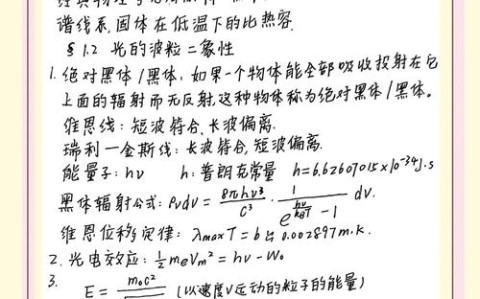 谱线系,固体在低温下的比热容.
§1.2 光的波粒二象性
1. 绝对黑体/黑体:如果一个物体能全部吸收投射在它
上面的辐射而无反射,这种物体称为绝对黑体/黑体。
维恩线:短波符合、长波偏离.
瑞利—金斯线:长波符合,短波偏离.
能量子:hν h:普朗克常量 h=6.62607015×10⁻³⁴J·s
黑体辐射公式:ρνdν = 8πhν³/c³ · 1/(e^(hν/kBT) − 1) dν.
维恩位移定律:λmaxT = b ≒ 0.002897m.k.
2. 光电效应:½meVm² = hν − W₀
3.
E = m₀c² (以速度V运动的粒子的能量)